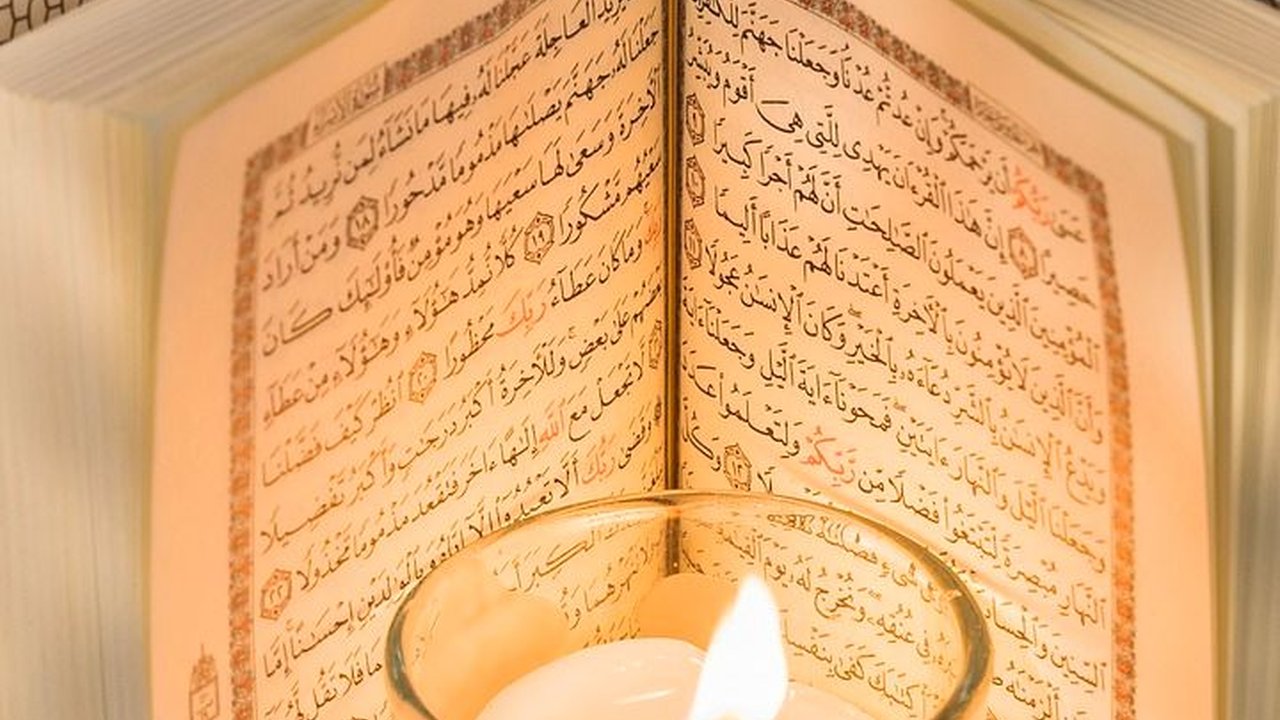 عَسَىٰ رَبُّكُمْ أَن يَرْحَمَكُمْ وَإِنْ عُدتُّمْ عُدْنَا وَجَعَلْنَا جَهَنَّمَ لِلْكَٰفِرِينَ
حَصِيرًا ٨ إِنَّ هَٰذَا ٱلْقُرْءَانَ يَهْدِى لِلَّتِى هِىَ أَقْوَمُ وَيُبَشِّرُ
ٱلْمُؤْمِنِينَ ٱلَّذِينَ يَعْمَلُونَ ٱلصَّٰلِحَٰتِ أَنَّ لَهُمْ أَجْرًا كَبِيرًا ٩
وَأَنَّ ٱلَّذِينَ لَا يُؤْمِنُونَ بِٱلْءَاخِرَةِ أَعْتَدْنَا لَهُمْ عَذَابًا أَلِيمًا ١٠
وَيَدْعُ ٱلْإِنسَٰنُ بِٱلشَّرِّ دُعَآءَهُۥ بِٱلْخَيْرِ وَكَانَ ٱلْإِنسَٰنُ عَجُولًا ١١
وَجَعَلْنَا ٱلَّيْلَ وَٱلنَّهَارَ ءَايَتَيْنِ فَمَحَوْنَآ ءَايَةَ ٱلَّيْلِ وَجَعَلْنَآ ءَايَةَ
ٱلنَّهَارِ مُبْصِرَةً لِّتَبْتَغُوا۟ فَضْلًا مِّن رَّبِّكُمْ وَلِتَعْلَمُوا۟ عَدَدَ
ٱلسِّنِينَ وَٱلْحِسَابَ شَىْءٍ فَصَّلْنَٰهُ ١٢ وَكُلَّ
أَلْزَمْنَٰهُ فِى عُنُقِهِۦ وَنُخْرِجُ لَهُۥ يَوْمَ ٱلْقِيَٰمَةِ
كِتَٰبَكَ كَفَىٰ بِنَفْسِكَ
سُورَةُ الإِسْرَاءِ
يُرِيدُ ٱلْعَاجِلَةَ عَجَّلْنَا لَهُۥ فِيهَا مَا نَشَآءُ لِمَن نُّرِيدُ ثُمَّ
جَعَلْنَا لَهُۥ جَهَنَّمَ يَصْلَىٰهَا مَذْمُومًا مَّدْحُورًا ١٨ وَمَنْ أَرَادَ
ٱلْءَاخِرَةَ وَسَعَىٰ لَهَا سَعْيَهَا وَهُوَ مُؤْمِنٌ فَأُو۟لَٰٓئِكَ كَانَ
سَعْيُهُم مَّشْكُورًا ١٩ كُلًّا نُّمِدُّ هَٰٓؤُلَآءِ وَهَٰٓؤُلَآءِ مِنْ عَطَآءِ
رَبِّكَ وَمَا كَانَ عَطَآءُ رَبِّكَ مَحْظُورًا ٢٠ ٱنظُرْ كَيْفَ فَضَّلْنَا
بَعْضَهُمْ عَلَىٰ بَعْضٍ وَلَلْءَاخِرَةُ أَكْبَرُ دَرَجَٰتٍ وَأَكْبَرُ تَفْضِيلًا
لَّا تَجْعَلْ مَعَ ٱللَّهِ إِلَٰهًا ءَاخَرَ فَتَقْعُدَ مَذْمُومًا مَّخْذُولًا ٢٢
وَقَضَىٰ رَبُّكَ أَلَّا تَعْبُدُوٓا۟ إِلَّآ إِيَّاهُ وَبِٱلْوَٰلِدَيْنِ إِحْسَٰنًا إِمَّا
ٱلْكِبَرَ فَلَا تَقُل لَّهُمَآ
تَنْهَرْهُمَا وَقُل